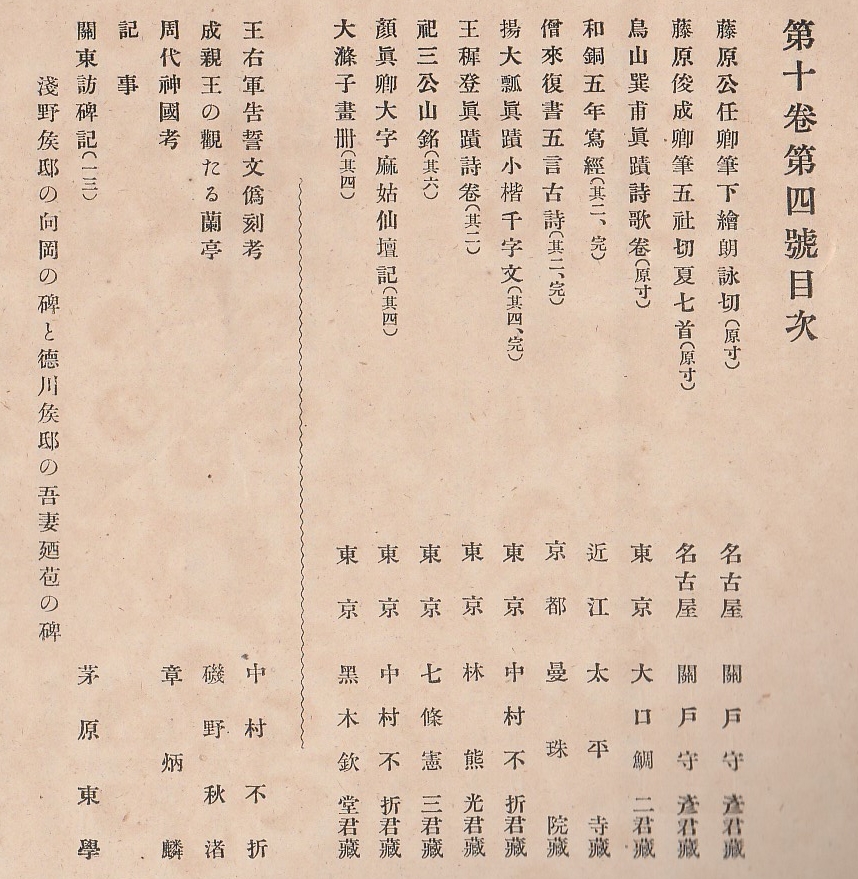 第十卷第四號目次
藤原公任卿筆下繪朗詠切(原寸) 名古屋 關戶守彥君藏
藤原俊成卿筆五社切夏七首(原寸) 名古屋 關戶守彥君藏
鳥山巽甫眞蹟詩歌卷(原寸) 東京 大口鯛二君藏
和銅五年寫經(其二、完) 近江 太平寺藏
僧來復書五言古詩(其二、完) 京都 曼珠院藏
揚大瓢眞蹟小楷千字文(其四、完) 東京 中村不折君藏
王穉登眞蹟詩卷(其二) 東京 林熊光君藏
祀三公山銘(其六) 東京 七條憲三君藏
顏眞卿大字麻姑仙壇記(其四) 東京 中村不折君藏
大滌子畫册(其四) 東京 黑木欽堂君藏
王右軍告誓文僞刻考 中村不折
成親王の觀たる蘭亭 磯野秋渚
周代神國考 章炳麟
記事
關東訪碑記(一三) 茅原東學
淺野矦邸の向岡の碑と德川矦邸の吾妻廼苞の碑